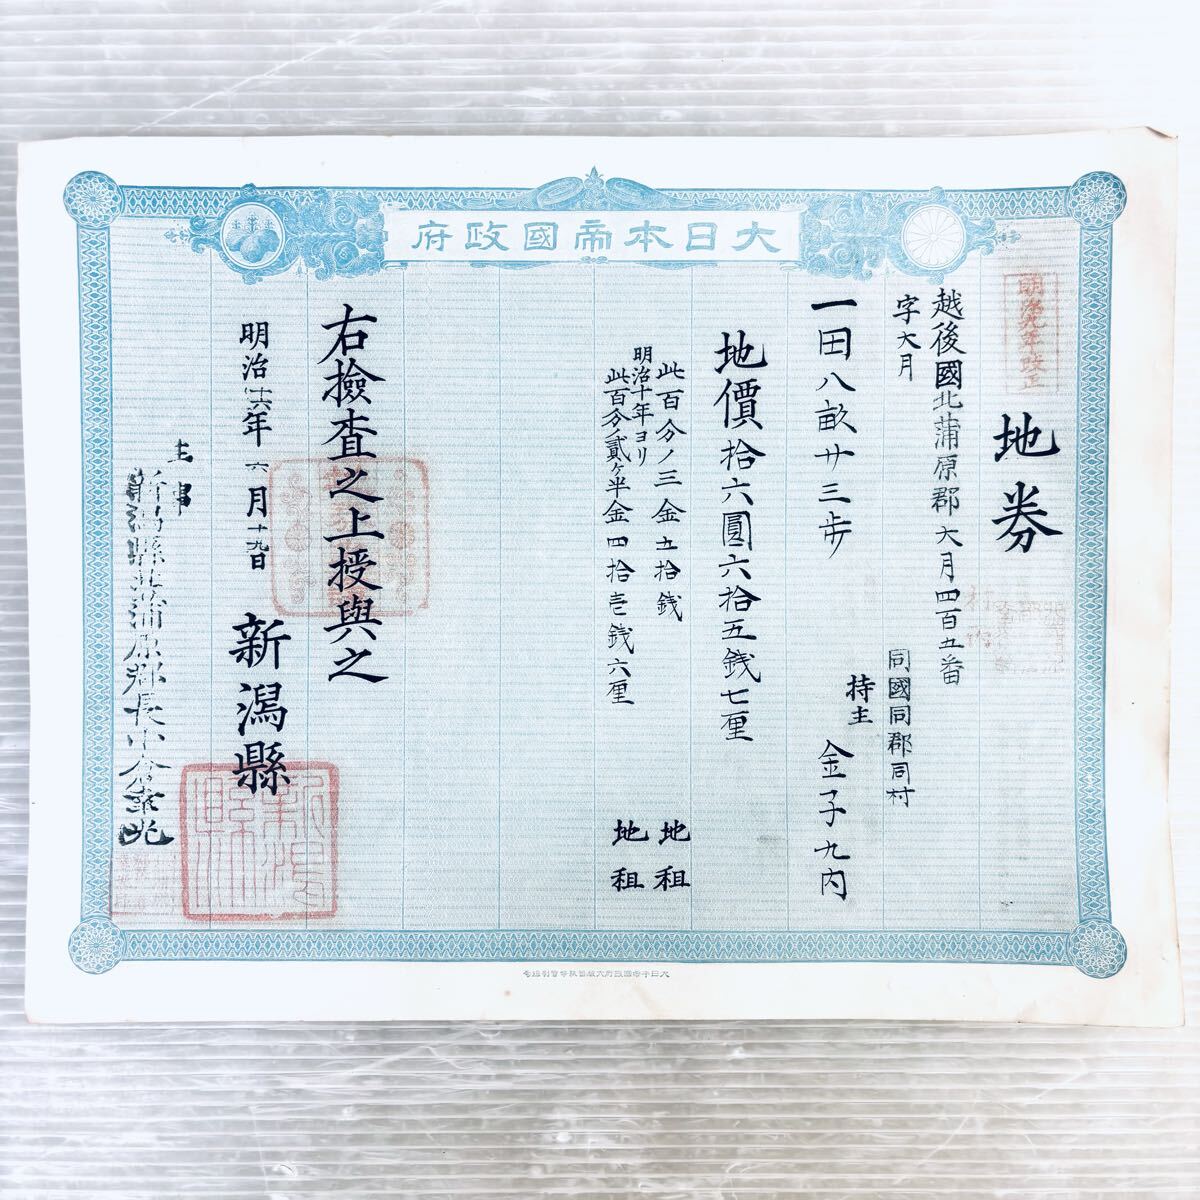 大日本帝國政府
明治九年改正
地券
越後國北蒲原郡大月四百五番
字大月
同國同郡同村
持主 金子九内
一田八畝廿三歩
地價拾六圓六拾五銭七厘
此百分ノ三金五拾銭 地租
明治十年ヨリ
此百分ノ貳ケ半金四拾壱銭六厘 地租
右檢査之上授與之
明治十六年六月十九日 新潟縣
主事
新潟縣北蒲原郡長小倉
新潟縣印